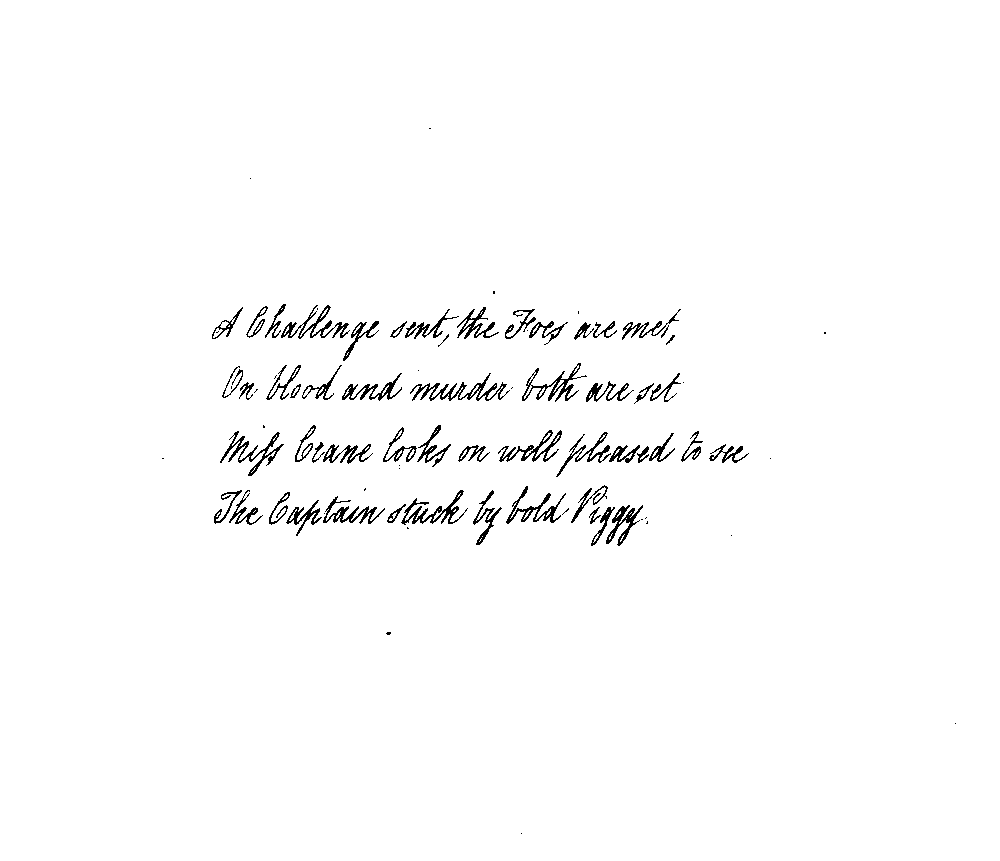 A Challenge sent, the Foes are met,
On blood and murder both are set
Miſs Crane looks on well pleased to see
The Captain stuck by bold Piggy.